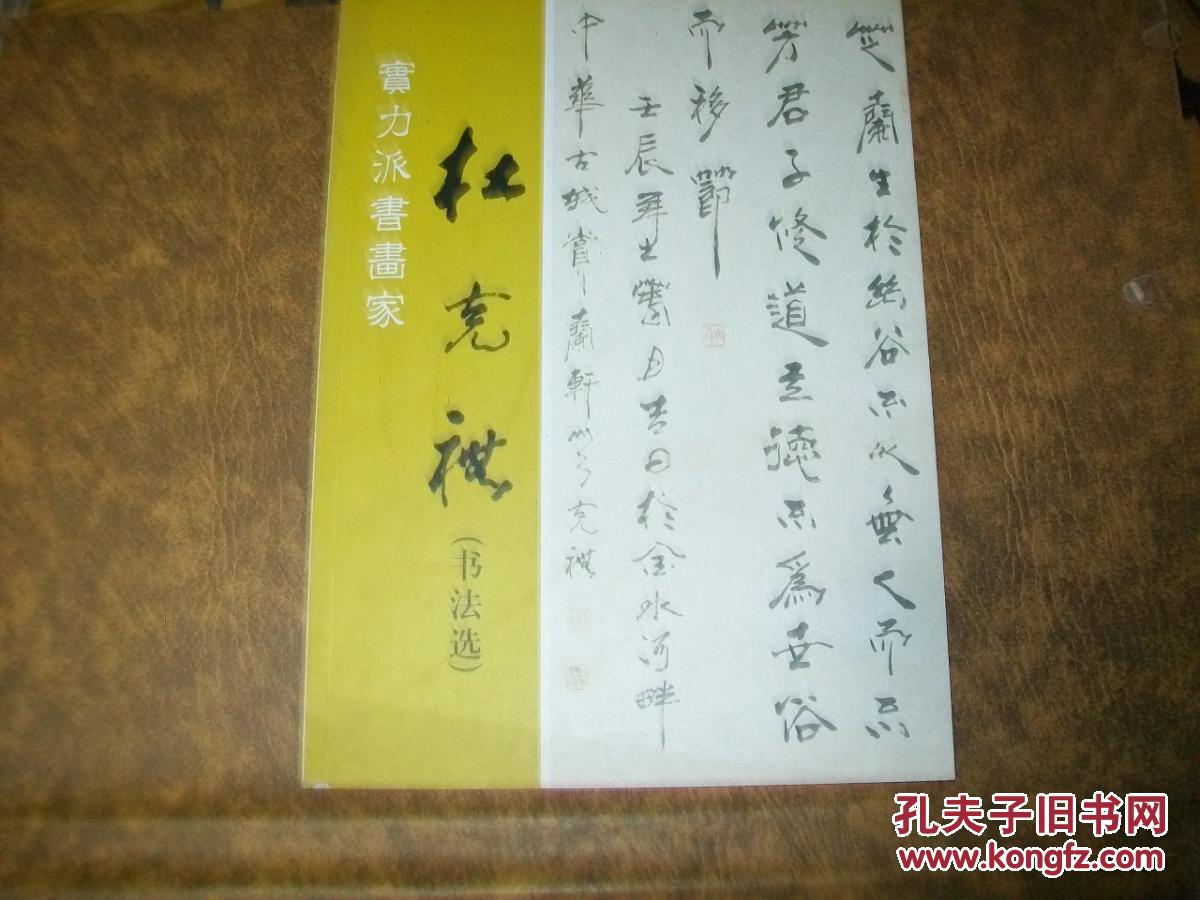 實力派書畫家
杜克祺
(书法选)
芝蘭生於幽谷不以無人而不
芳君子修道立德不為世俗
而移
壬辰年之 月吉日於金水河畔
中華古城賞蘭軒 克祺
孔夫子旧书网
www.kongfz.com